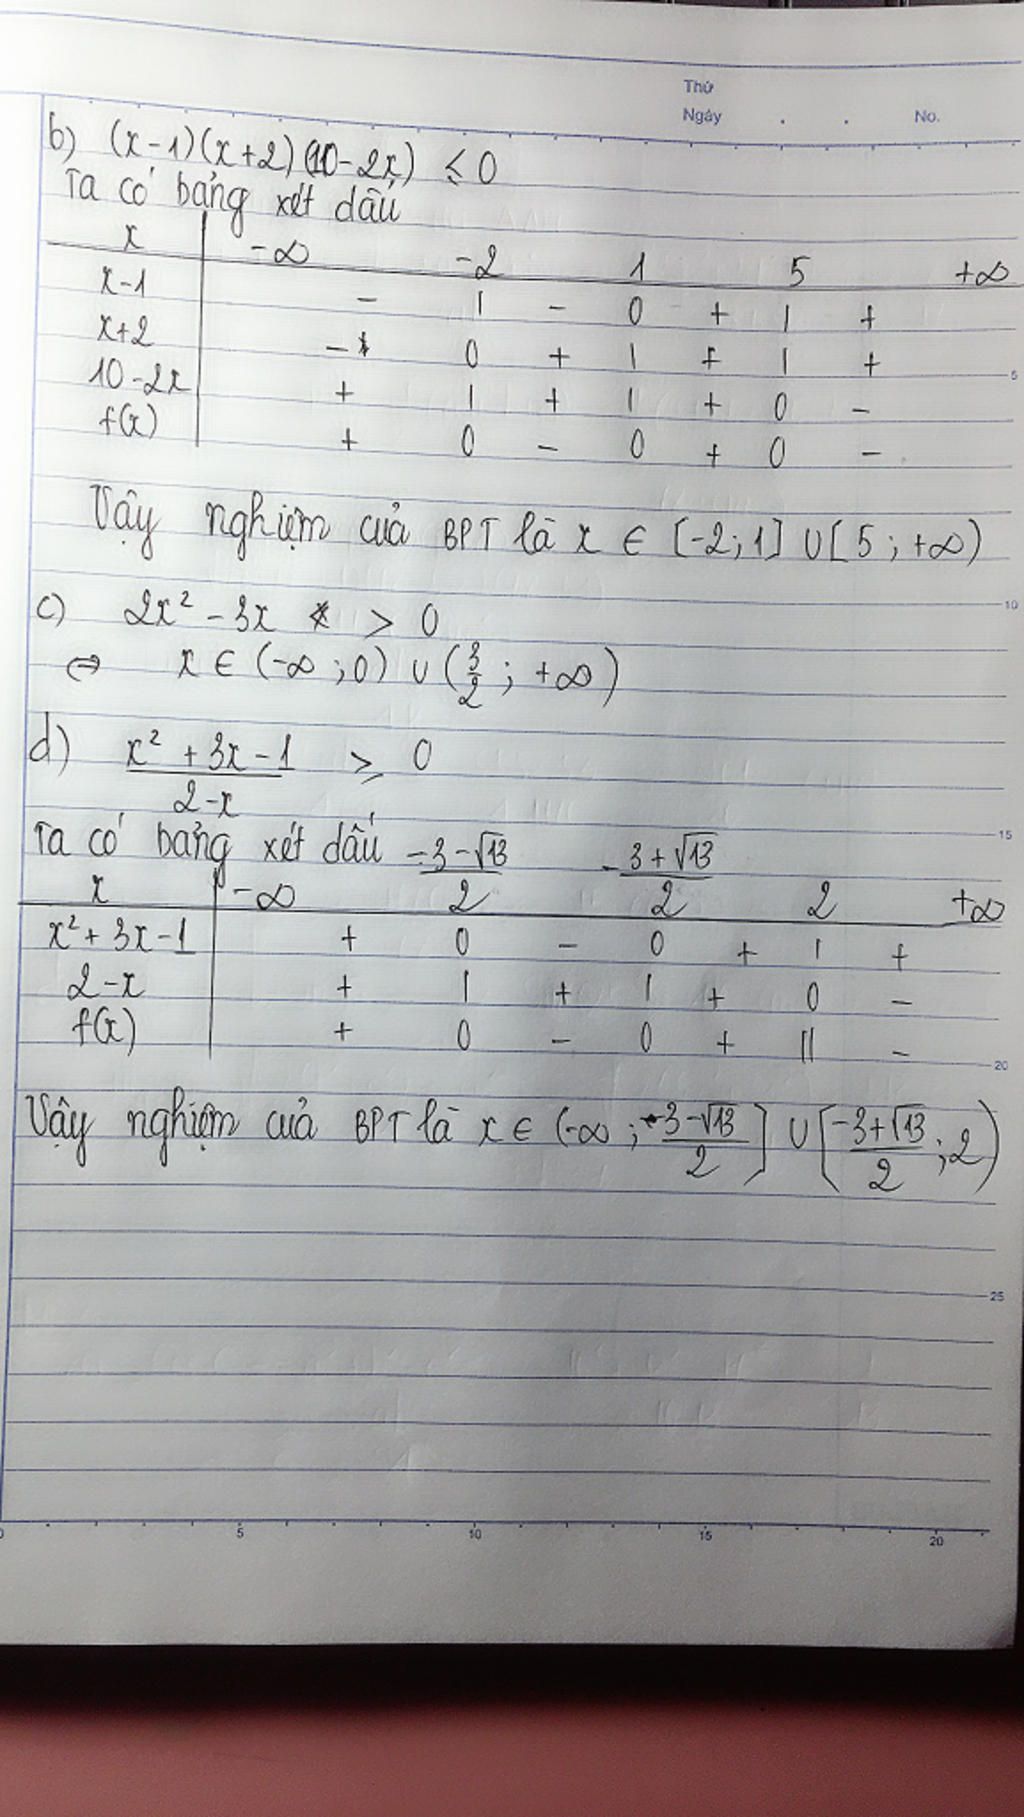 Thứ
Ngày . . No.
b) (x-1)(x+2)(10-2x) ≤ 0
Ta có bảng xét dấu
x -∞ -2 1 5 +∞
x-1 - | - 0 + | +
x+2 - 0 + | + | +
10-2x + | + | + 0 -
f(x) + 0 - 0 + 0 -
Vậy nghiệm của BPT là x ∈ [-2; 1] ∪ [5; +∞)
c) 2x² - 3x > 0
⇔ x ∈ (-∞; 0) ∪ (3/2; +∞)
d) (x² + 3x - 1)/(2-x) ≥ 0
Ta có bảng xét dấu
x -∞ (-3-√13)/2 (-3+√13)/2 2 +∞
x² + 3x - 1 + 0 - 0 + | +
2-x + | + | + 0 -
f(x) + 0 - 0 + || -
Vậy nghiệm của BPT là x ∈ (-∞; (-3-√13)/2] ∪ [(-3+√13)/2; 2)
5
10
15
20
25
0 5 10 15 20